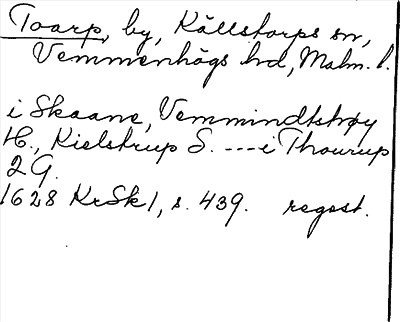 Toarp, by, Källstorps sn,
Vemmenhögs hd, Malm. l.
i Skaane, Vemmindtshøy
H., Kielstrup S. ---- i Thourup
2 G.
1628 KrSk 1, s. 439. regest.